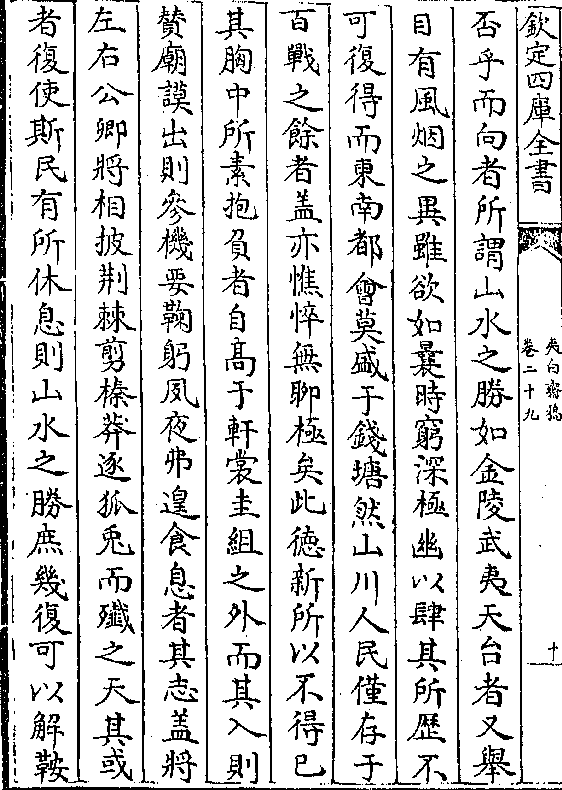 欽定四庫全書
夷白齋稿
卷二十九
十
否乎而向者所謂山水之勝如金陵武夷天台者又舉
目有風烟之異雖欲如曩時窮深極幽以肆其所歴不
可復得而東南都㑹莫盛于錢塘然山川人民僅存于
百戰之餘者盖亦憔悴無聊極矣此徳新所以不得已
其胸中所素抱負者自髙于軒裳圭組之外而其入則
賛廟謨出則參機要鞠躬夙夜弗遑食息者其志盖將
左右公卿將相披荆棘剪榛莽逐狐兎而殱之天其或
者復使斯民有所休息則山水之勝庶幾復可以解鞍